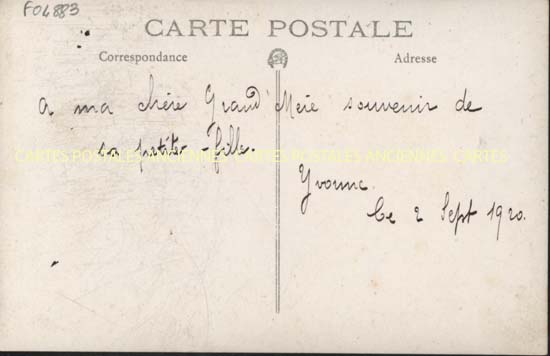 F04883
CARTE POSTALE
Correspondance
Adresse
a ma chère Grand'Mère souvenir de
sa petite-fille.
CARTES POSTALES ANCIENNES CARTES POSTALES ANCIENNES CARTES
Yvonne
Ce 2 Sept 1920.